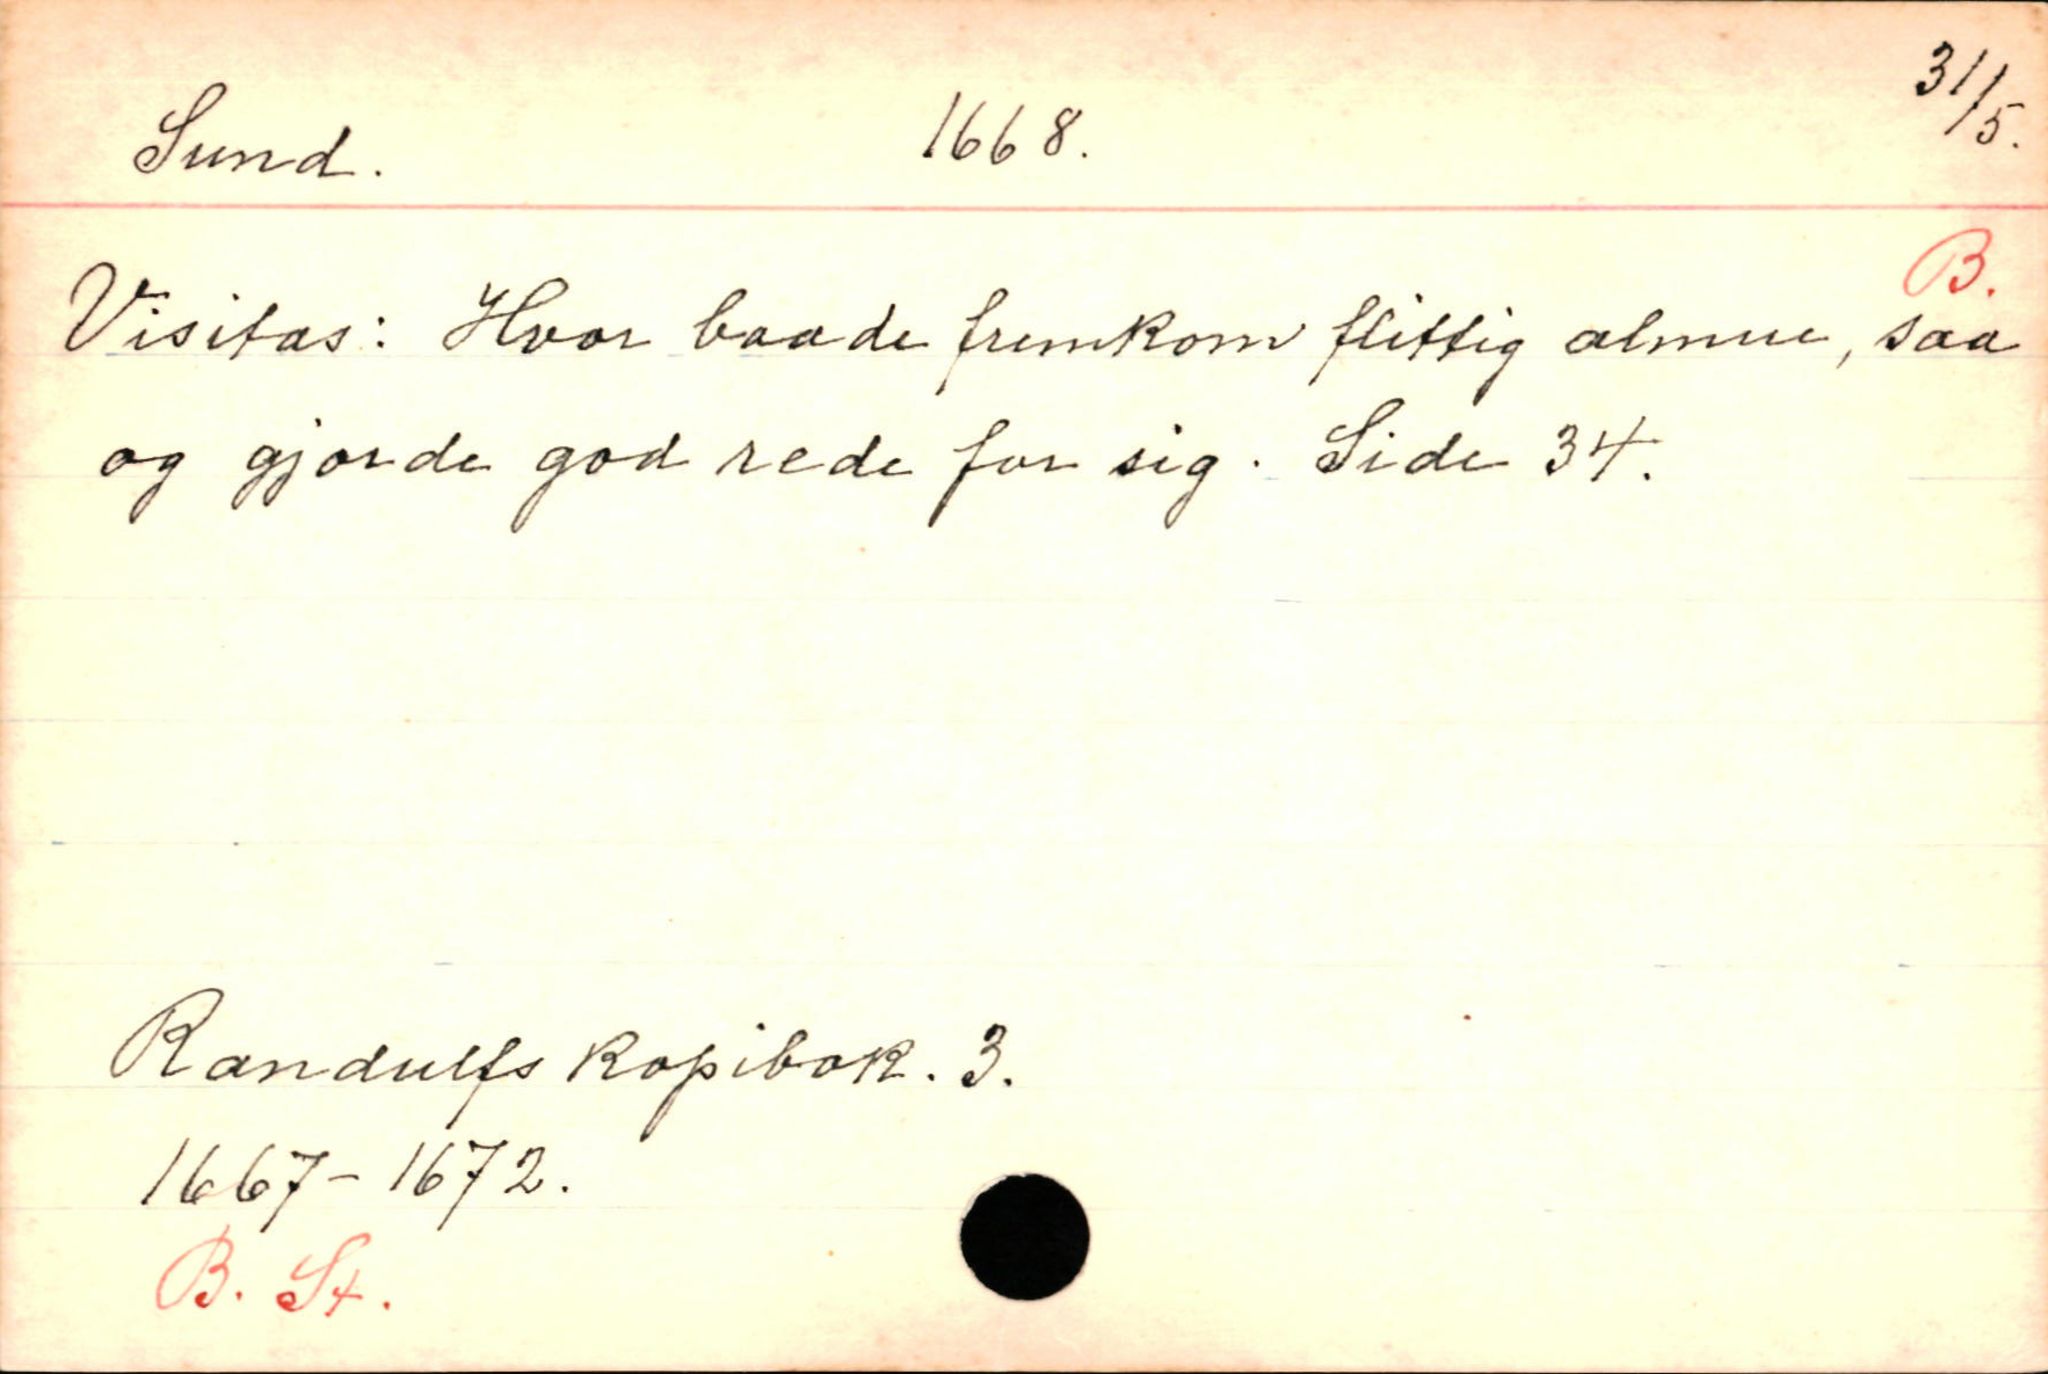 Sund. 1668. 31/5.
B.
Visitas: Hvor baade fremkom flittig almue, saa
og gjorde god rede for sig. Side 34.
Randulfs kopibok. 3.
1667-1672.
B. St.